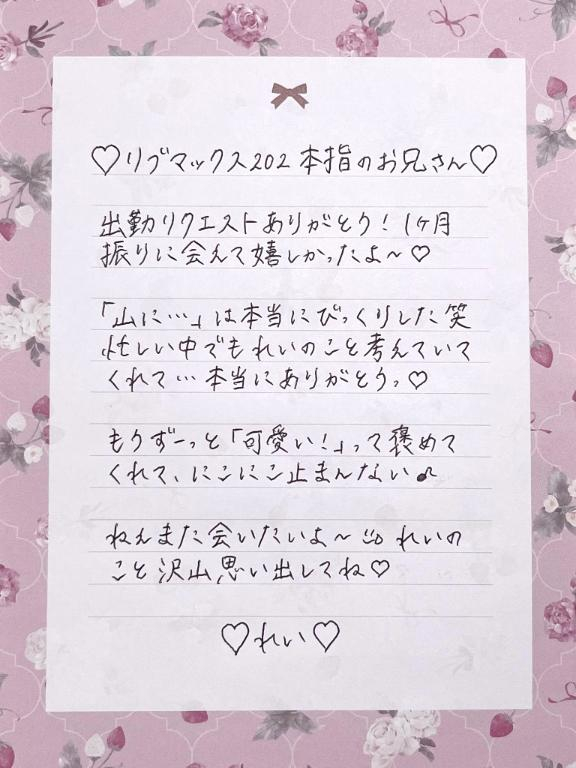 ♡リブマックス202 本指のお兄さん♡
出勤リクエストありがとう！1ヶ月
振りに会えて嬉しかったよ〜♡
「山に…」は本当にびっくりした笑
忙しい中でもれいのこと考えていて
くれて…本当にありがとうっ♡
もうずーっと「可愛い！」って褒めて
くれて、にこにこ止まんない♪
ねえまた会いたいよ〜 れいの
こと沢山思い出してね♡
♡れい♡